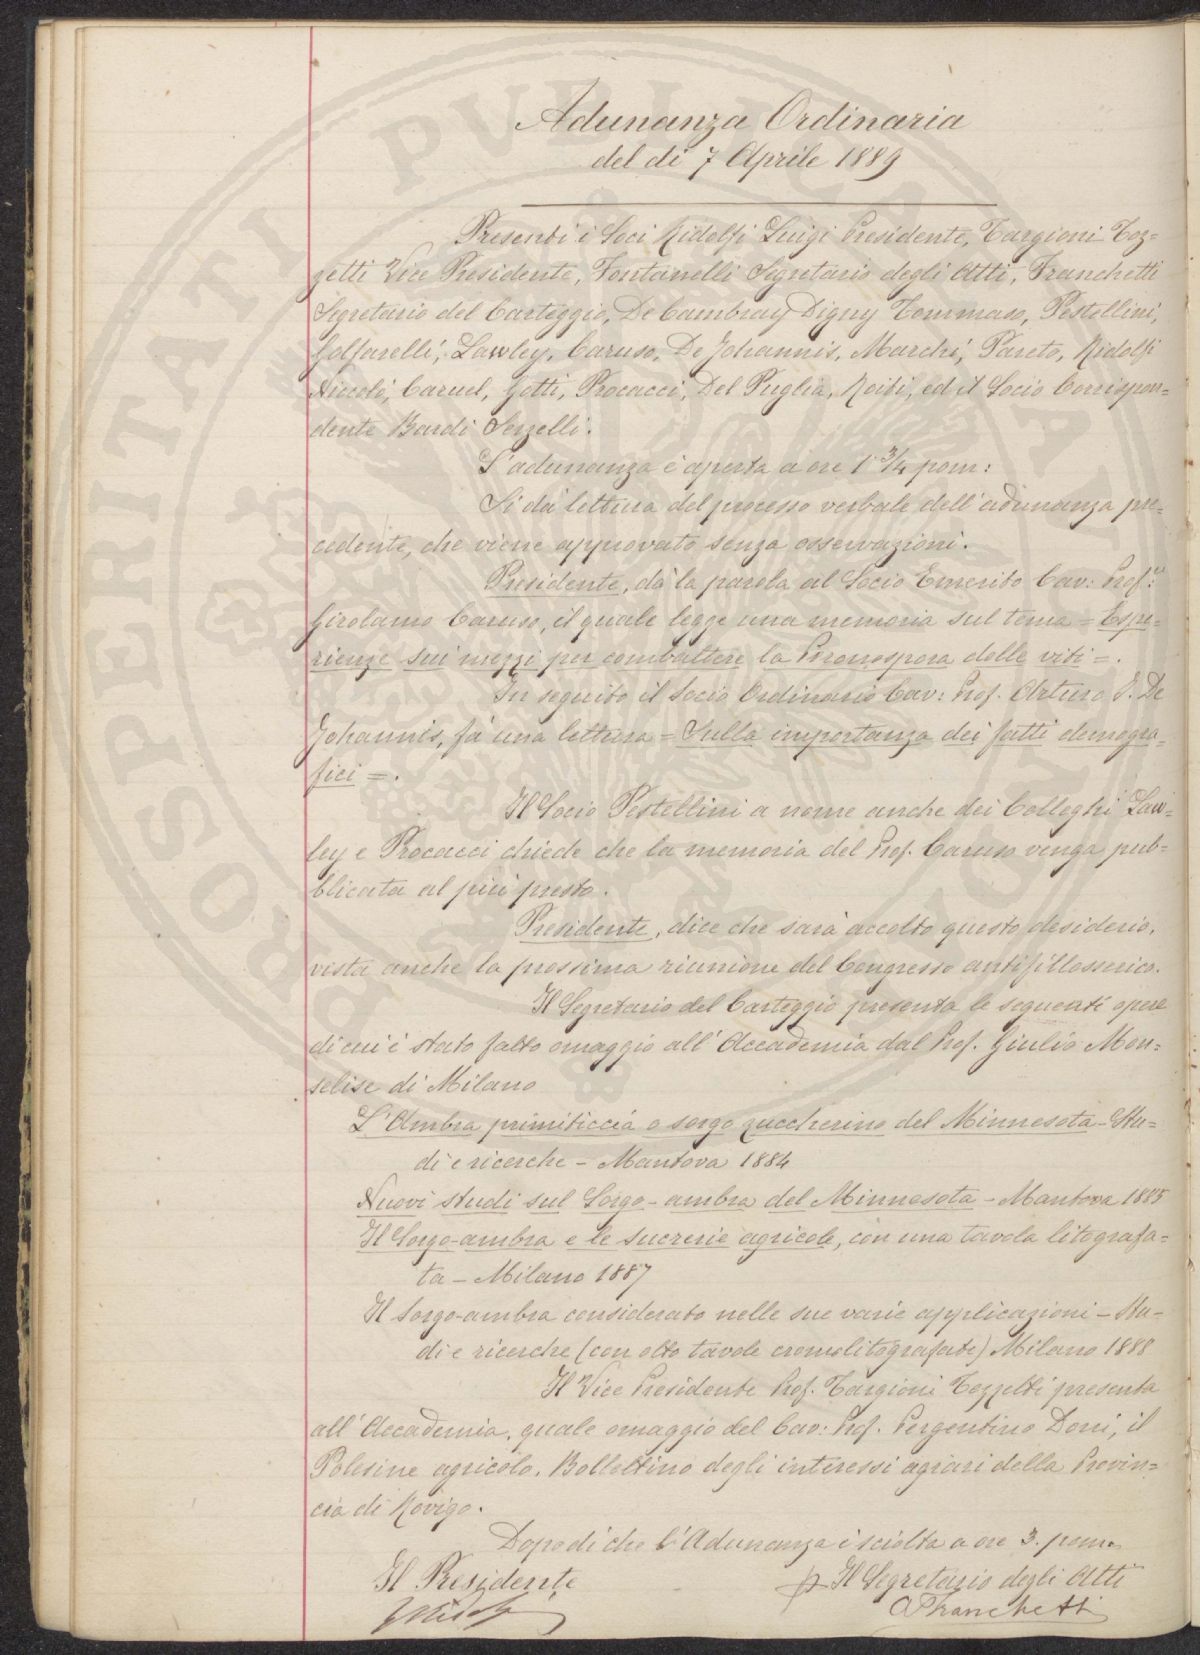 Adunanza Ordinaria
del dì 7 Aprile 1889
Presenti i Soci Ridolfi Luigi Presidente, Targioni Toz=
zetti Vice Presidente, Fontanelli Segretario degli Atti, Franchetti
Segretario del Carteggio, De Cambray Digny Tommaso, Pestellini,
Golfarelli, Lawley, Caruso, De Johannis, Marchi, Pareto, Ridolfi
Niccolò, Caruel, Gotti, Procacci, Del Puglia, Roiti, ed il Socio Corrispon=
dente Bardi Serzelli.
L'adunanza è aperta a ore 1 3/4 pom:
Si dà lettura del processo verbale dell'adunanza pre=
cedente, che viene approvato senza osservazioni.
Presidente, dà la parola al Socio Emerito Cav: Prof:
Girolamo Caruso, il quale legge una memoria sul tema = Espe=
rienze sui mezzi per combattere la Peronospora delle viti =.
In seguito il Socio Ordinario Cav: Prof. Arturo J. De
Johannis, fà una lettura = Sulla importanza dei fatti demogra=
fici =.
Il Socio Pestellini a nome anche dei Colleghi Law=
ley e Procacci chiede che la memoria del Prof. Caruso venga pub=
blicata al più presto.
Presidente, dice che sarà accolto questo desiderio,
vista anche la prossima riunione del Congresso antifillosserico.
Il Segretario del Carteggio presenta le seguenti opere
di cui è stato fatto omaggio all'Accademia dal Prof. Giulio Mon=
selise di Milano
L'Ambra primiticcia o sorgo zuccherino del Minnesota - Stu=
di e ricerche - Mantova 1884
Nuovi studi sul Sorgo-ambra del Minnesota - Mantova 1885
Il Sorgo-ambra e le sucrerie agricole, con una tavola litografa=
ta - Milano 1887
Il Sorgo-ambra considerato nelle sue varie applicazioni - Stu-
di e ricerche (con otto tavole cromolitografate) Milano 1888
Il Vice Presidente Prof. Targioni Tozzetti presenta
all'Accademia, quale omaggio del Cav: Prof. Pergentino Doni, il
Polesine agricolo. Bollettino degli interessi agrari della Provin=
cia di Rovigo.
Dopo di che l'Adunanza è sciolta a ore 3. pom.
Il Presidente
p Il Segretario degli Atti
A Franchetti
PROSPERITATI PUBLICAE AUGENDAE